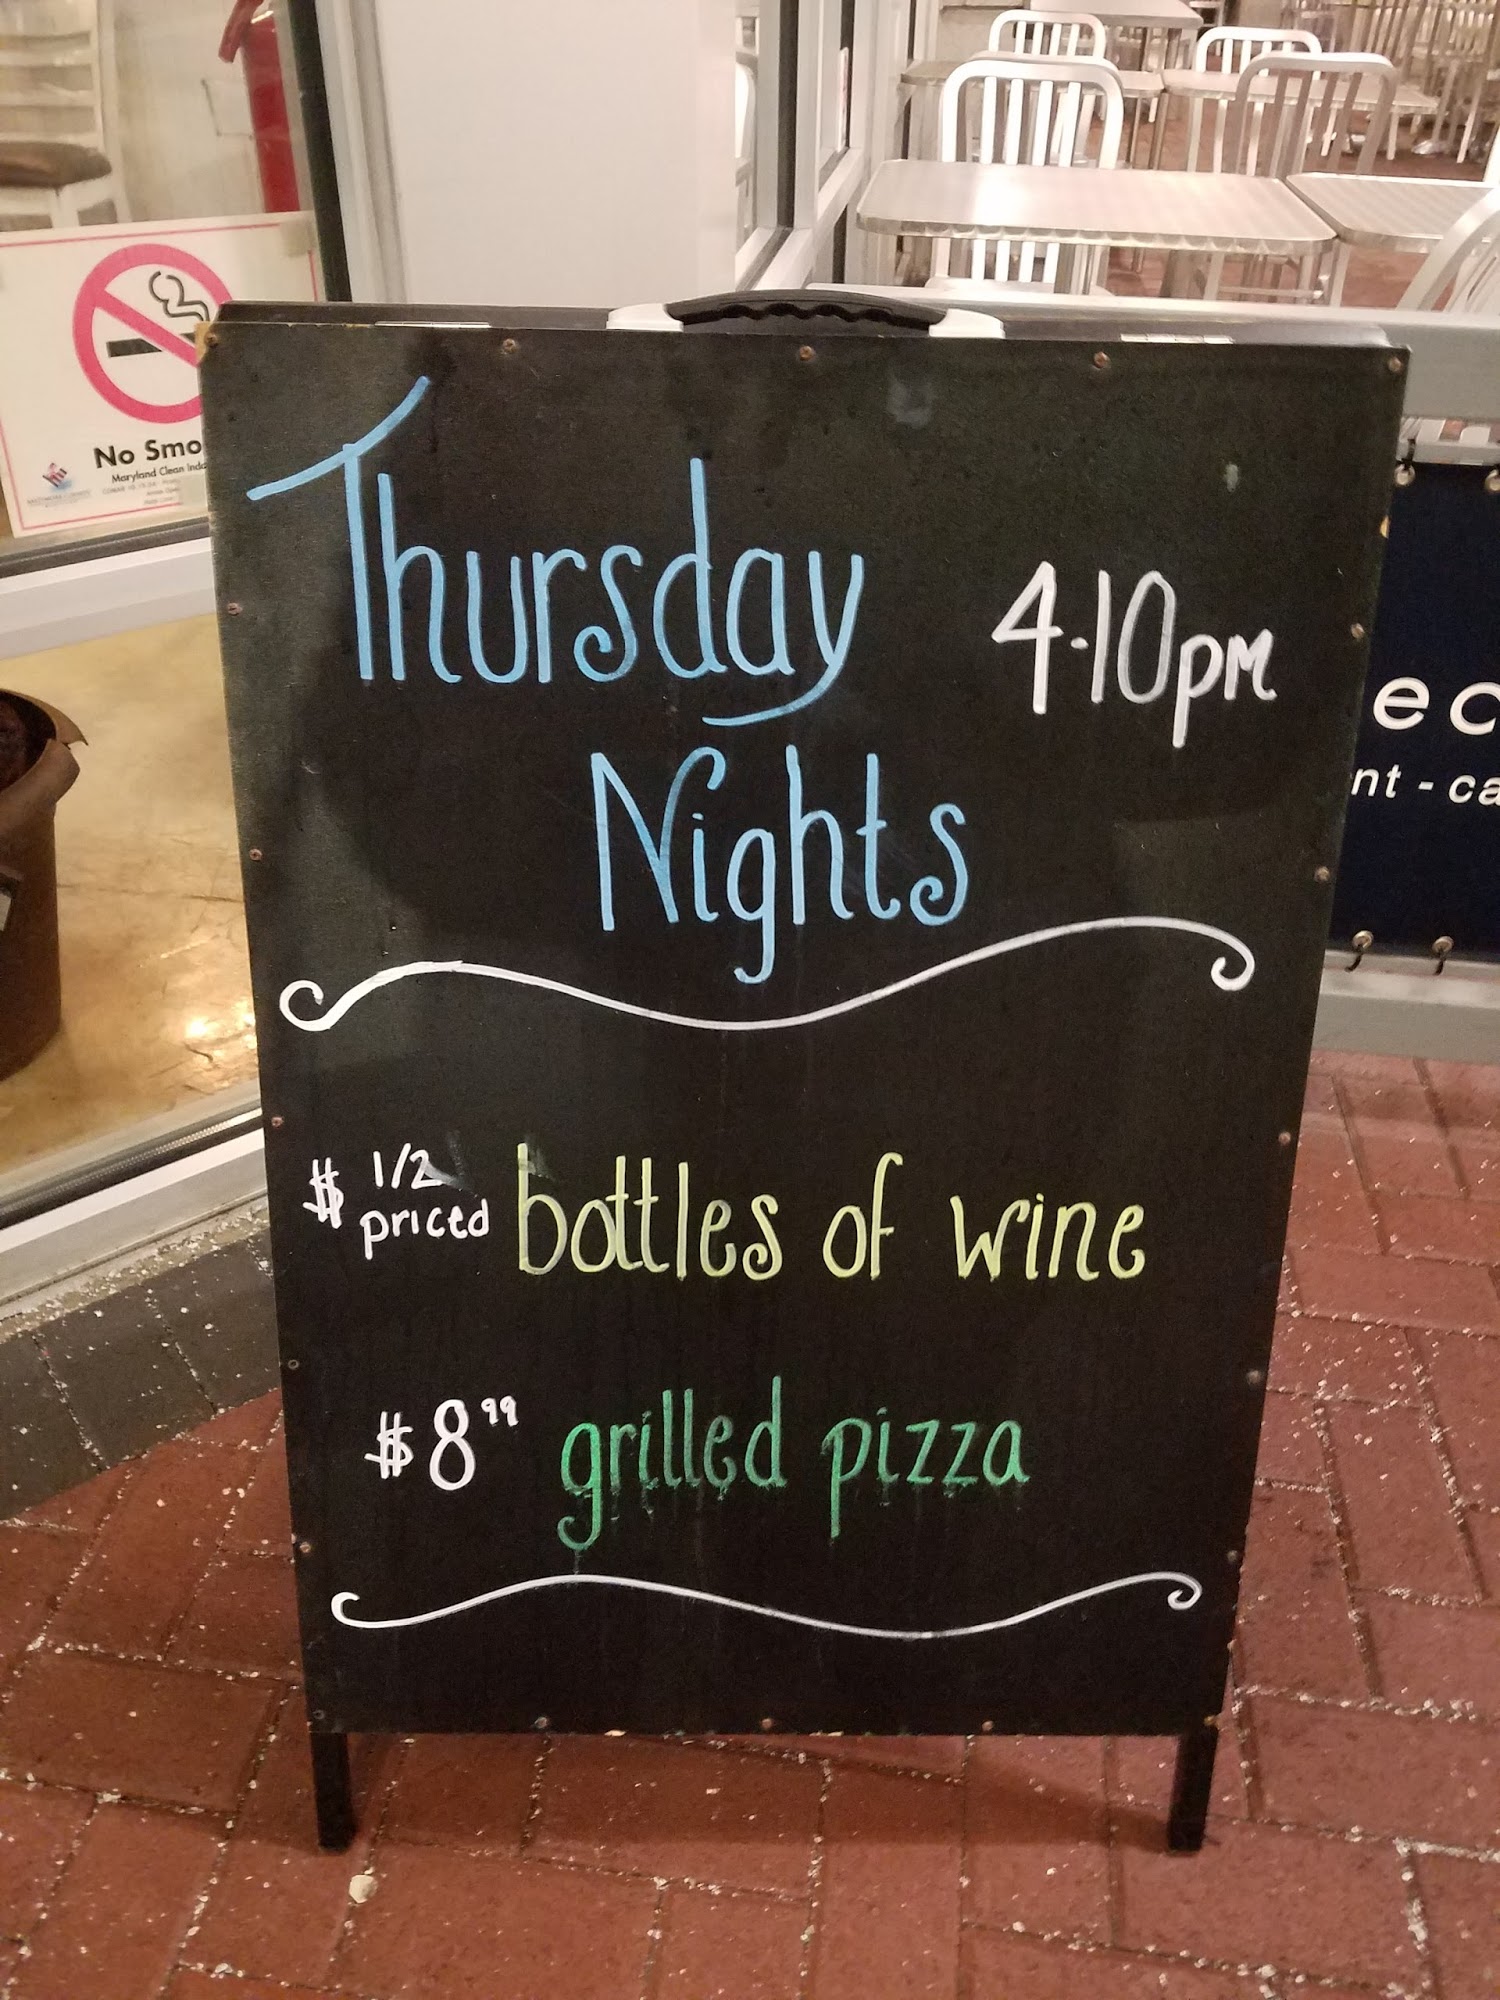 Thursday
Nights
4-10pm
$ 1/2
priced
bottles of wine
$8.99 grilled pizza
No Smo
Maryland Clean Ind
ec
nt - ca